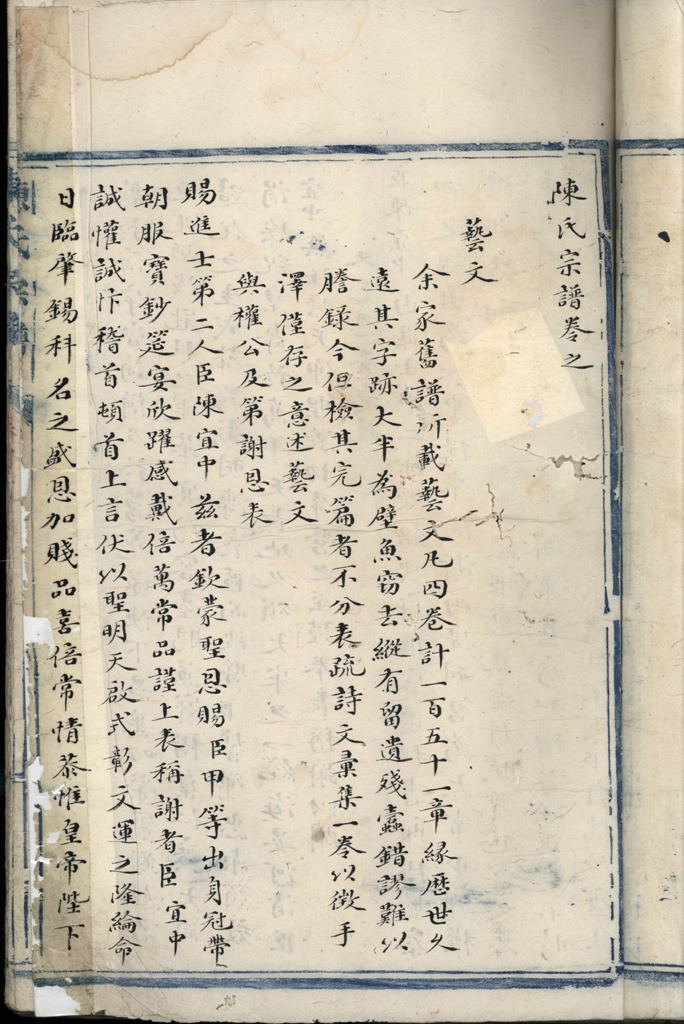 陳氏宗譜卷之
藝文
余家舊譜所載藝文凡四卷計一百五十一章緣歷世久
遠其字跡大半為壁魚窃去縱有留遺殘蠹錯謬難以
謄錄今但檢其完篇者不分表疏詩文彙集一卷以徵手
澤僅存之意述藝文
與權公及第謝恩表
賜進士第二人臣陳宜中茲者欽蒙聖恩賜臣甲等出身冠帶
朝服寶鈔筵宴欣躍感戴倍萬常品謹上表稱謝者臣宜中
誠懽誠忭稽首頓首上言伏以聖明天啟式彰文運之隆綸命
日臨肇錫科名之盛恩加賤品喜倍常情恭惟皇帝陛下